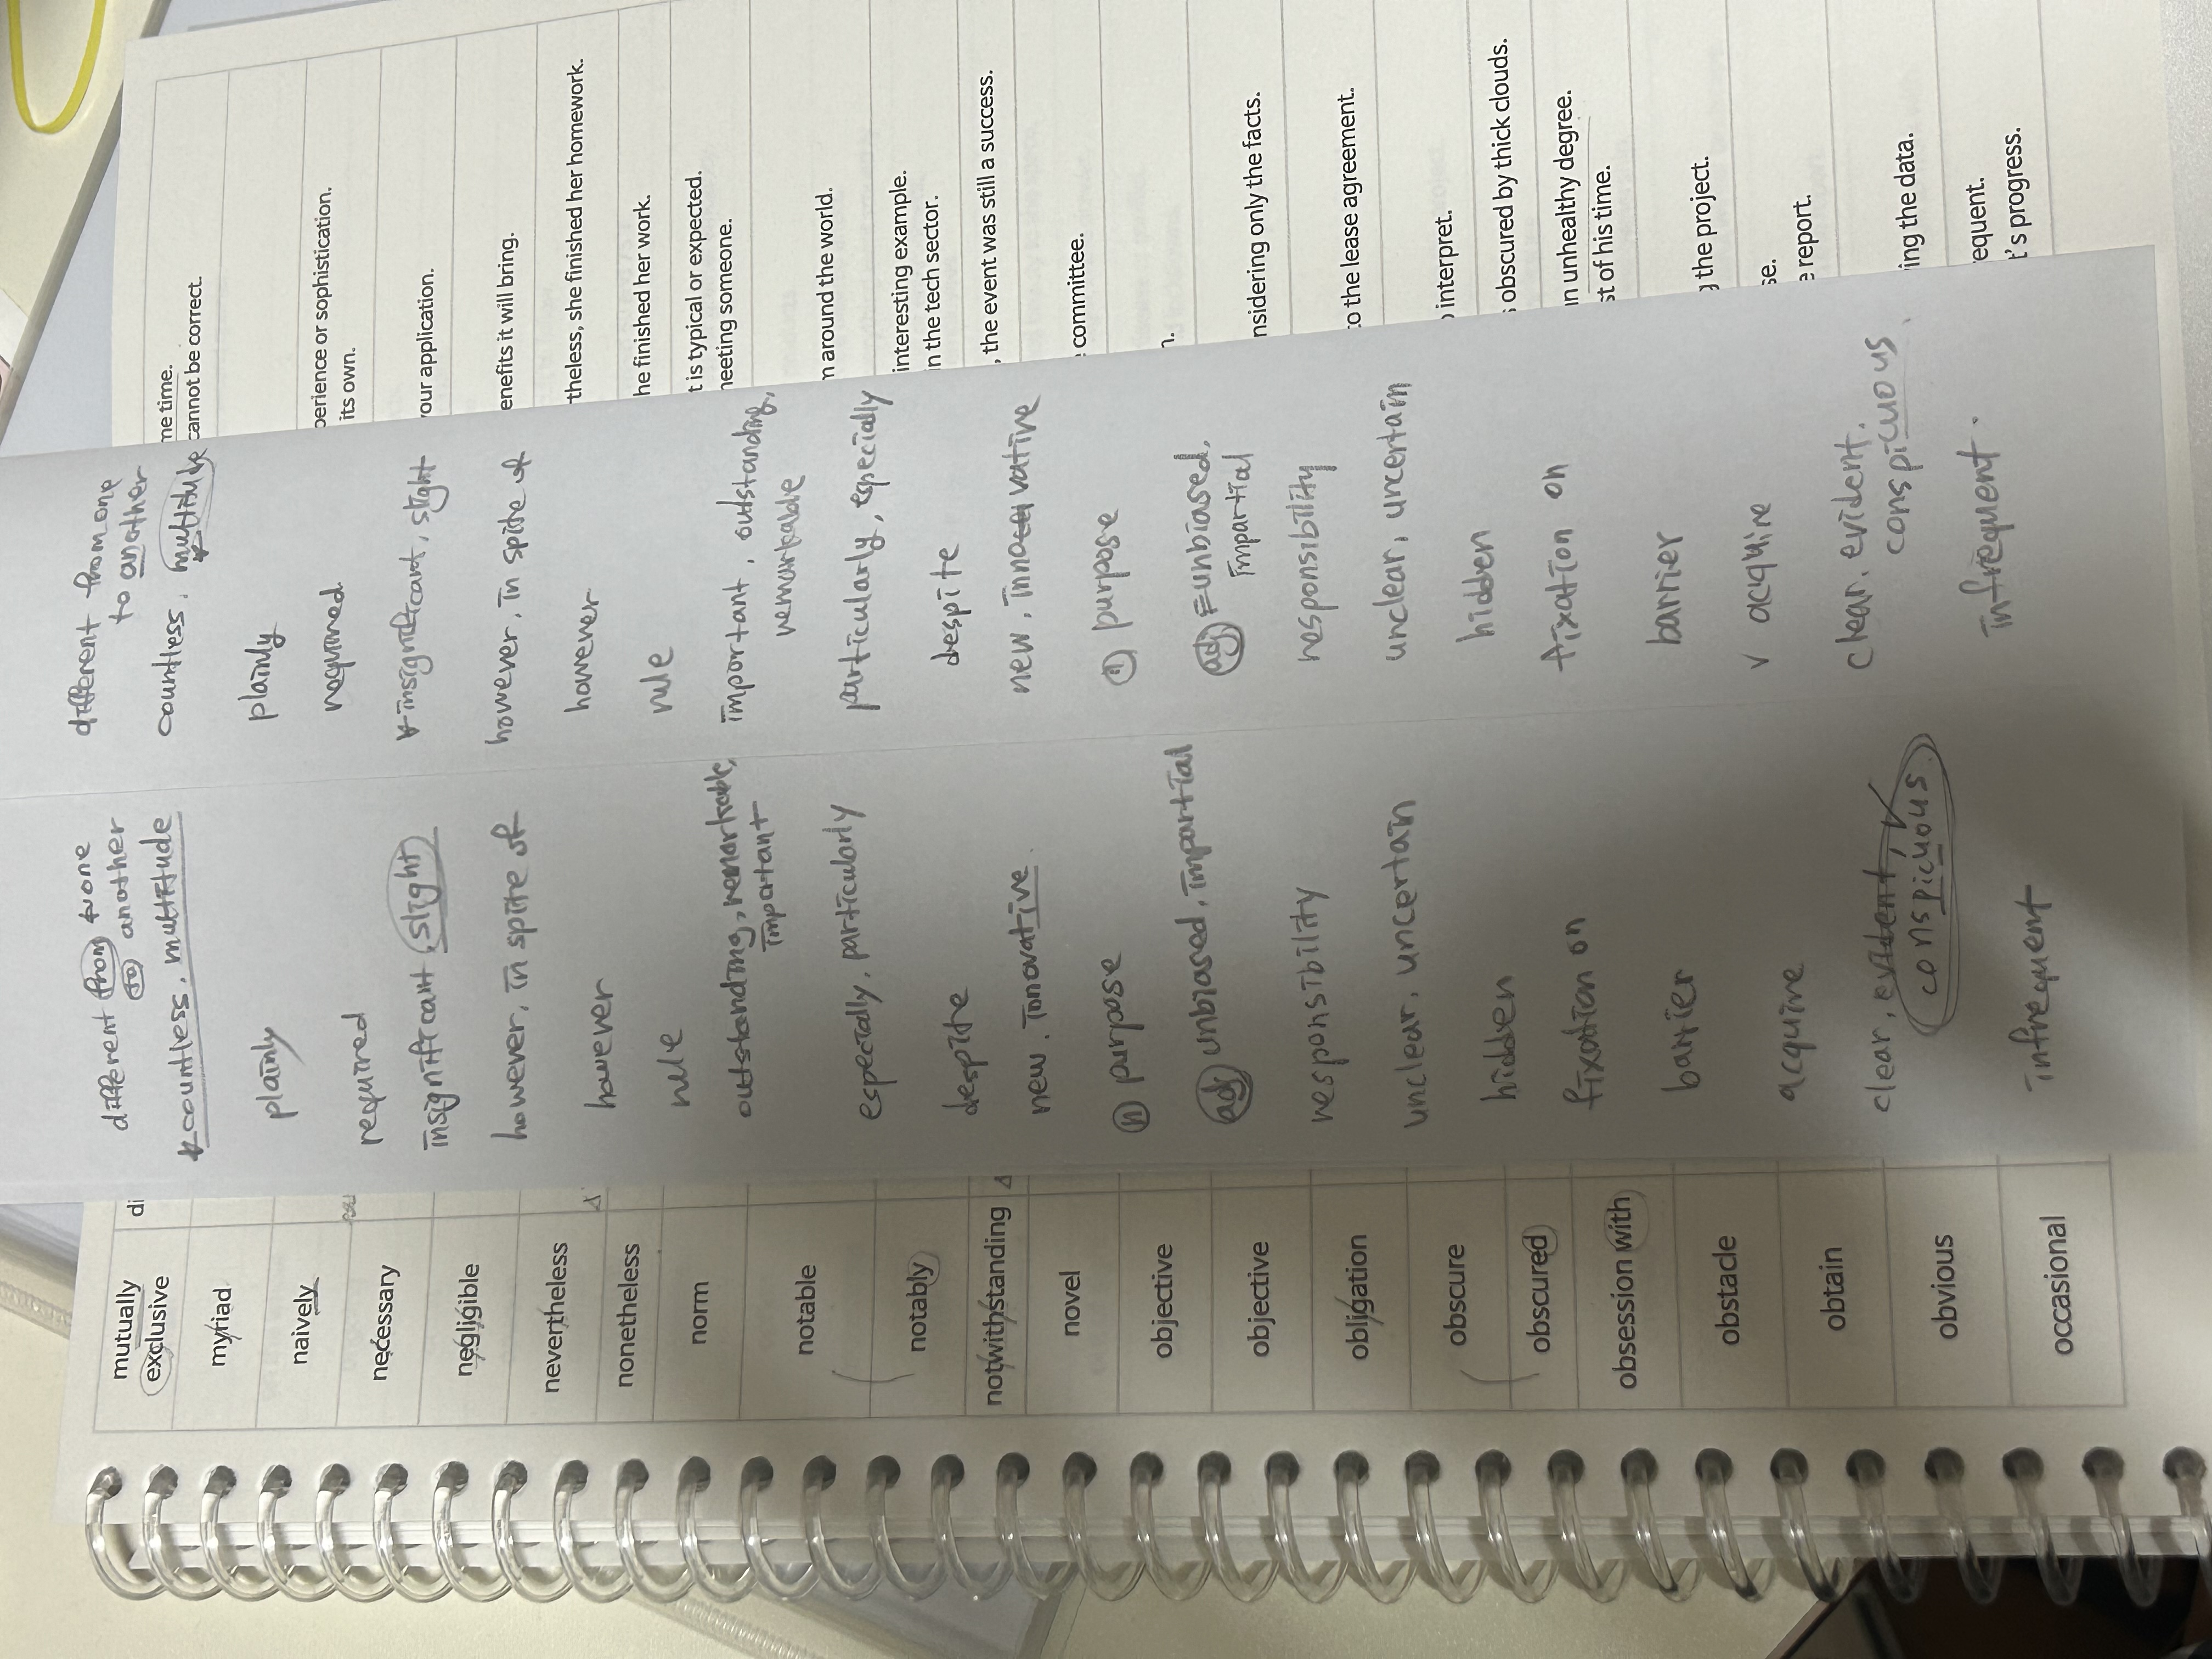 mutually
exclusive
di
different from one
to another
different from one
to another
me time.
cannot be correct.
myriad
countless, multitude
countless, multitude
naively
plainly
plainly
perience or sophistication.
its own.
necessary
required
required
your application.
negligible
insignificant, slight
insignificant, slight
enefits it will bring.
nevertheless
however, in spite of
however, in spite of
theless, she finished her homework.
nonetheless
however
however
he finished her work.
norm
rule
rule
t is typical or expected.
neeting someone.
notable
outstanding, remarkable,
important
important, outstanding,
remarkable
n around the world.
notably
especially, particularly
particularly, especially
interesting example.
n the tech sector.
notwithstanding
despite
despite
, the event was still a success.
novel
new. innovative.
new, innovative
committee.
objective
n purpose
n purpose
n.
objective
adj unbiased, impartial
adj = unbiased,
impartial
nsidering only the facts.
obligation
responsibility
responsibility
to the lease agreement.
obscure
unclear, uncertain
unclear, uncertain
interpret.
obscured
hidden
hidden
s obscured by thick clouds.
obsession with
fixation on
fixation on
n unhealthy degree.
st of his time.
obstacle
barrier
barrier
g the project.
obtain
acquire
v acquire
se.
e report.
obvious
clear, evident,
conspicuous
clear, evident.
conspicuous
ing the data.
occasional
infrequent
infrequent.
equent.
t's progress.